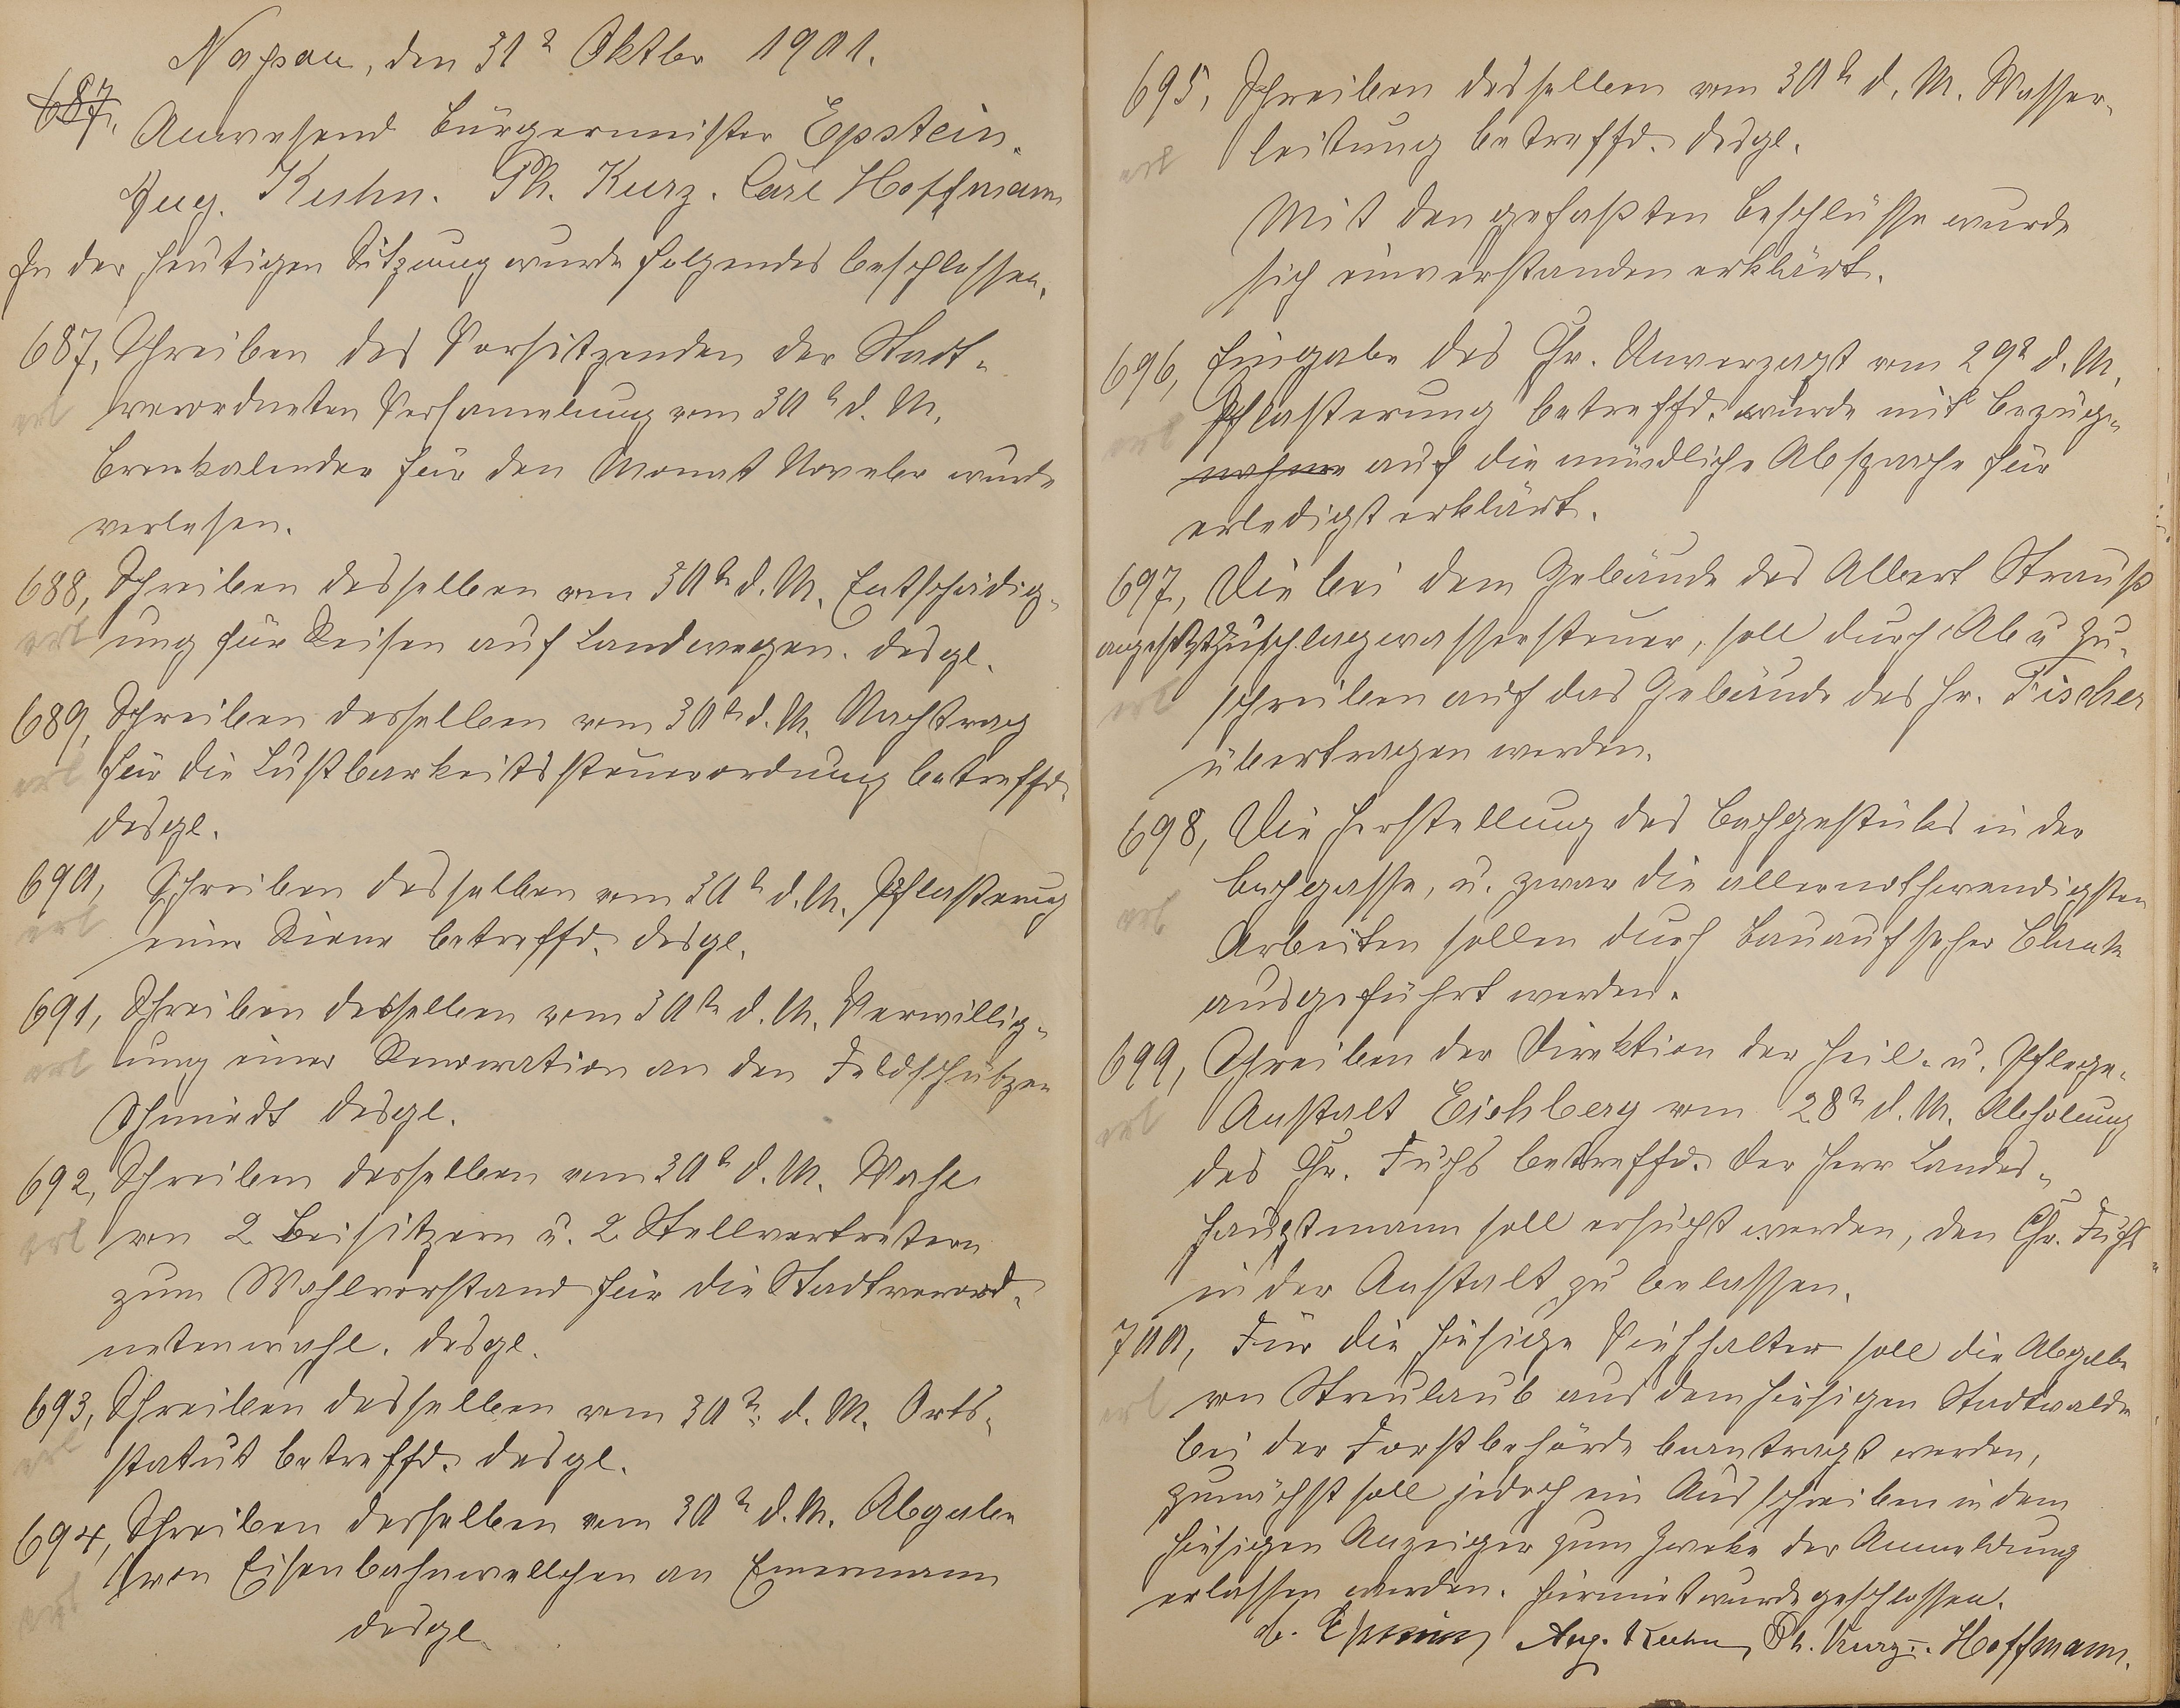 Nassau, den 31t Oktbr 1901.
687.
Anwesend Bürgermeister Epstein.
Aug. Kuhn. Ph. Kurz. Carl Hoffmann
In der heutigen Sitzung wurde folgendes beschlossen.
687, Schreiben des Vorsitzenden der Stadt-
erl verordneten Versammlung vom 30t d. M.
für den Monat Novembr wurde
verlesen.
688, Schreiben desselben vom 30t d. M. Entschädig-
erl ung für Reisen auf Landwegen. desgl.
689, Schreiben desselben vom 30t d. M. Nachtrag
erl für die Lustbarkeitssteuerordnung betreffd.
desgl.
690, Schreiben desselben vom 30t d. M. Pflasterung
erl einer betreffd. desgl.
691, Schreiben desselben vom 30t d. M. Verwillig-
erl ung einer an den Feldschützen
Schmidt desgl.
692, Schreiben desselben vom 30t d. M. Wahl
erl von 2 Beisitzern u. 2 Stellvertretern
zum Wahlvorstand für die Stadtverord-
netenwahl. desgl.
693, Schreiben desselben vom 30t d. M. Orts-
erl statut betreffd. desgl.
694, Schreiben desselben vom 30t d. M. Abgabe
erl von an
desgl.
695, Schreiben desselben vom 30t d. M. Wasser-
erl leitung betreffd. desgl.
Mit den gefaßten Beschlüsse wurde
sich einverstanden erklärt.
696, Eingabe des Chr. Unverzagt vom 29t d. M.
erl Pflasterung betreffd. wurde mit Bezug-
nahme auf die mündliche Absprache für
erledigt erklärt.
697, Die bei dem Gebäude des Albert Strauß
angesetzte Zuschlagwassersteuer, soll durch Ab u Zu-
erl schreiben auf das Gebäude des Hr. Fischer
übertragen werden.
698, Die Herstellung des Bachgestücks in der
erl Bachgasse, u. zwar die allernothwendigsten
Arbeiten sollen durch Bauaufseher Blank
ausgeführt werden.
699, Schreiben der Direktion der Heil- u. Pflege-
erl Anstalt Eichberg vom 28t d. M. Abholung
des Chr. Fuchs betreffd. Der Herr Landes-
hauptmann soll ersucht werden, den Chr. Fuchs
in der Anstalt zu belassen.
700, Für die hiesige Viehhalter soll die Abgabe
erl von Streulaub aus dem hiesigen Stadtwalde
bei der Forstbehörde beantragt werden,
zunächst soll jedoch ein Ausschreiben in dem
hiesigen Anzeiger zum Zwecke der Anmeldung
erlassen werden. Hiermit wurde geschlossen.
Epstein Aug. Kuhn, Ph. Kurz. Hoffmann.